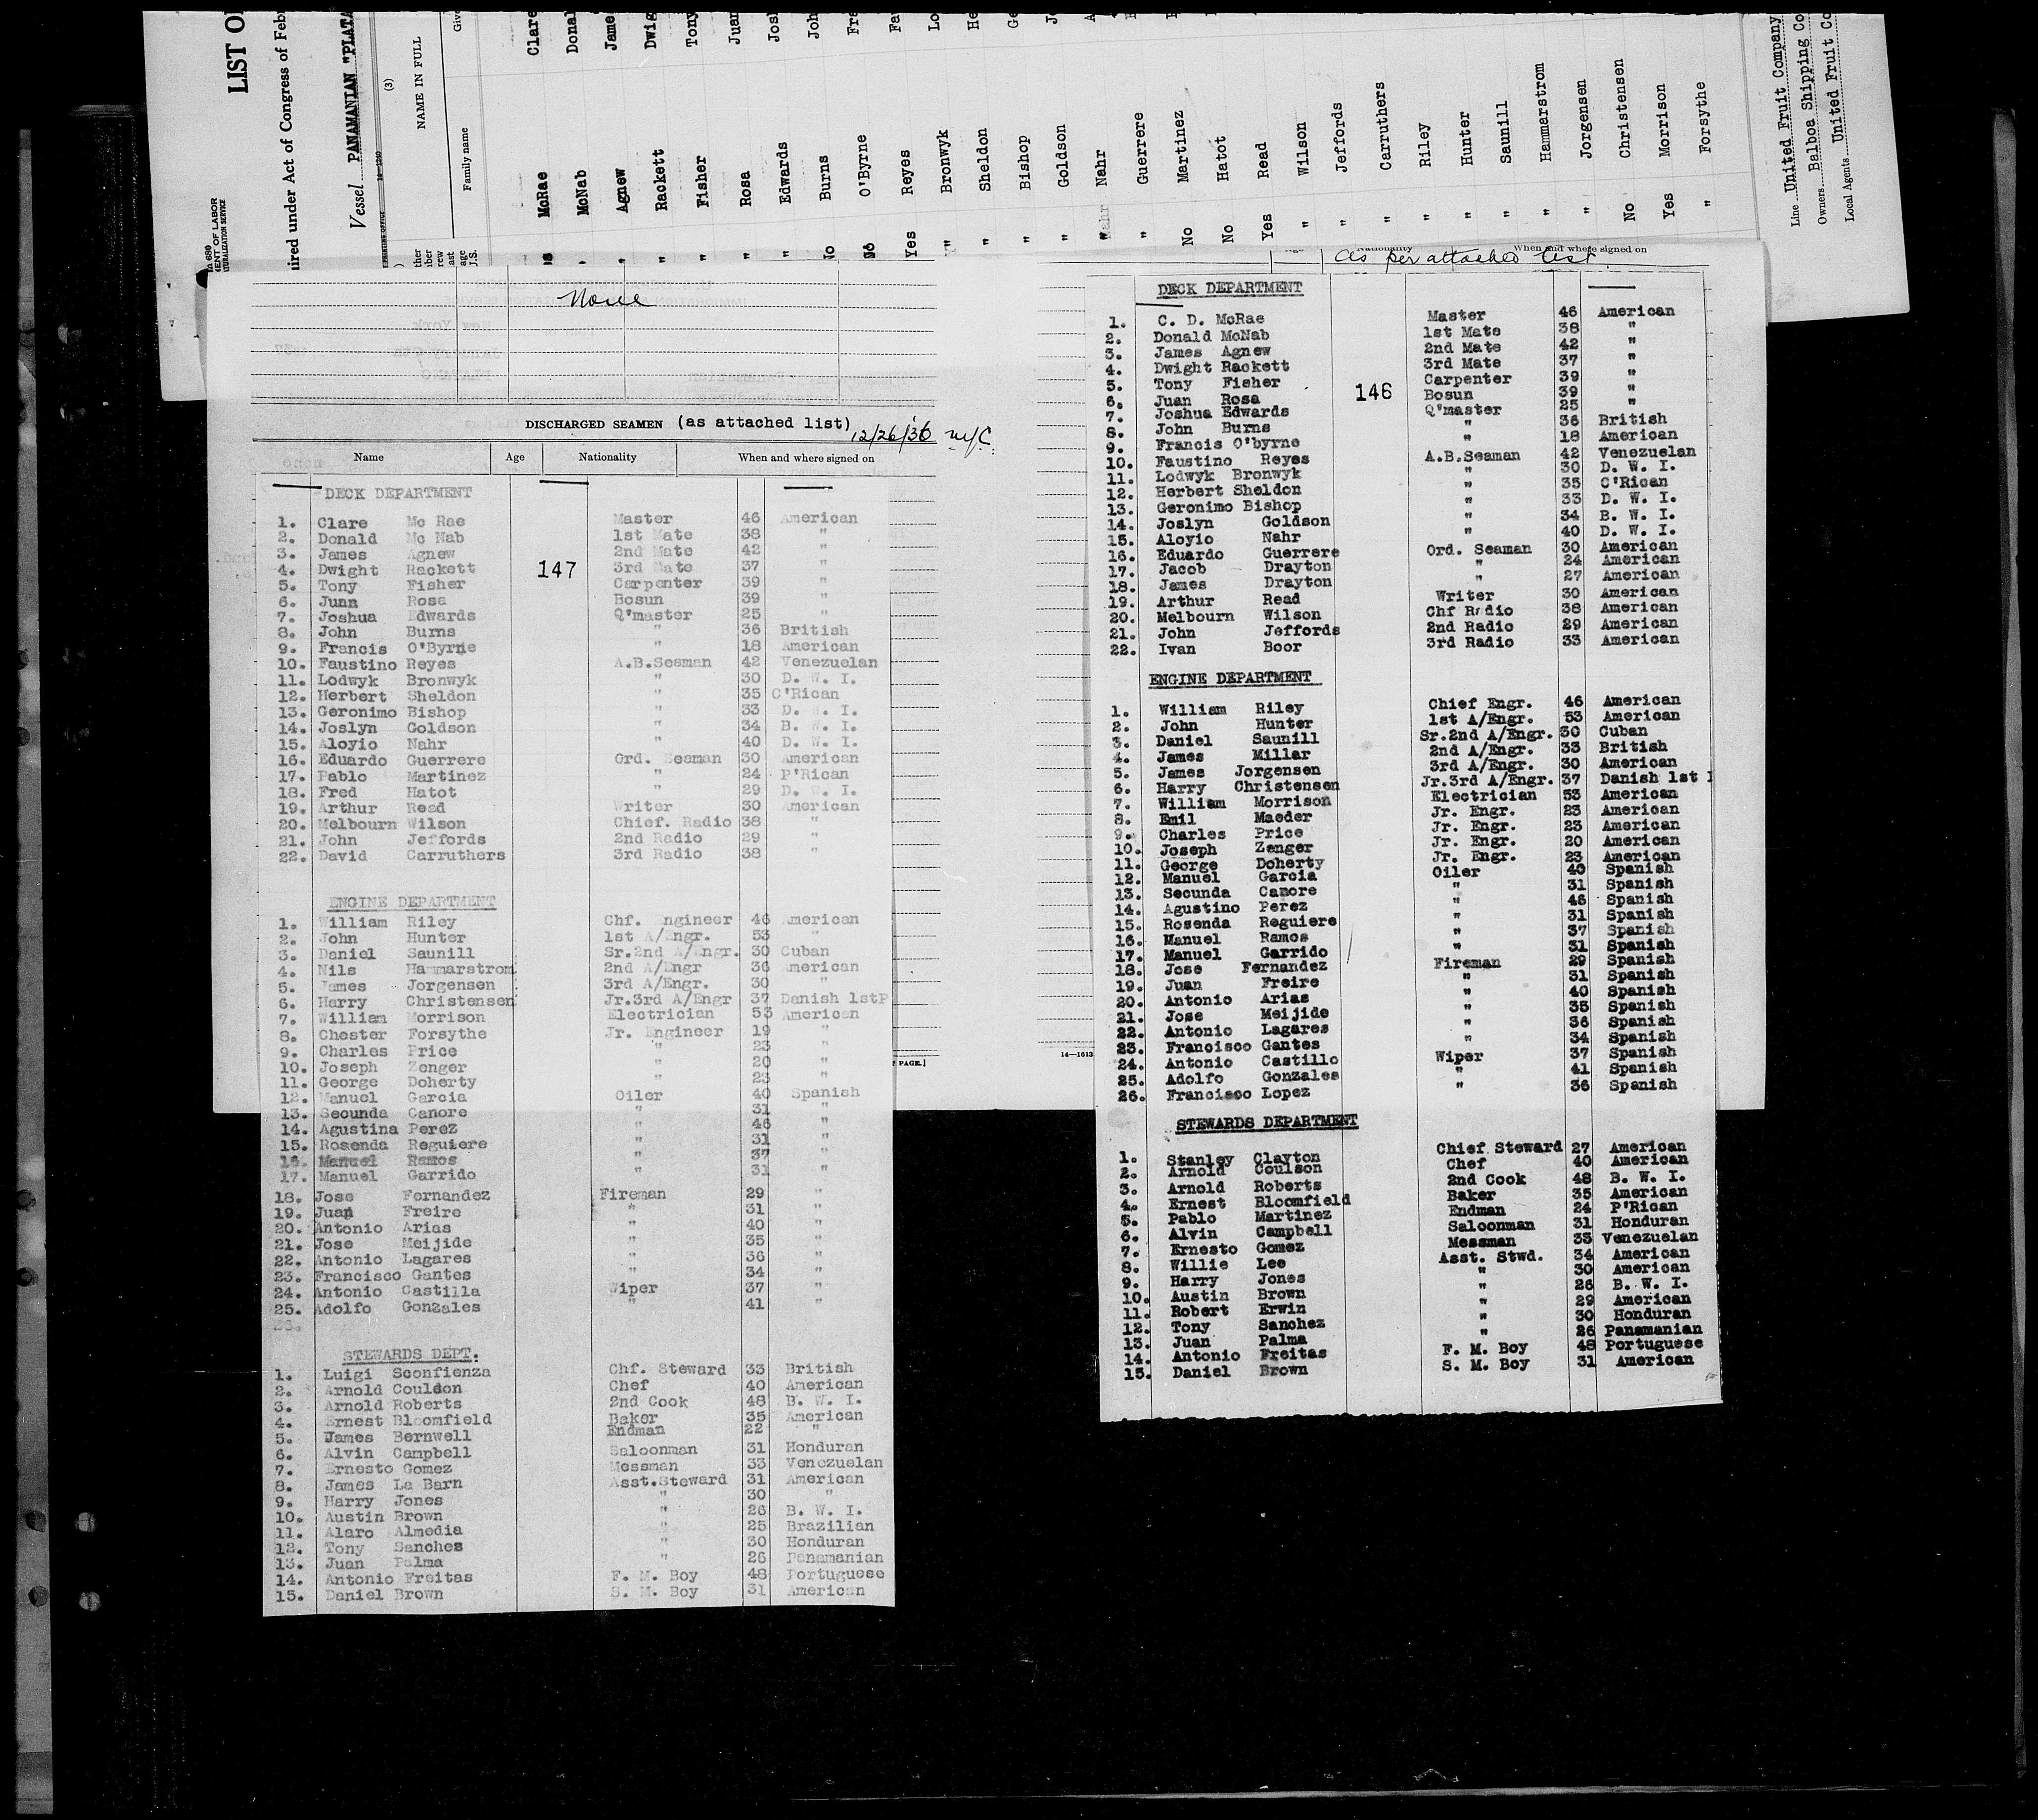 LIST O
ired under Act of Congress of Feb
MENT OF LABOR
Vessel PANAMANIAN "PLATA
(3)
NAME IN FULL
Family name
Give
McRae Clare
McNab Donal
Agnew Jame
Rackett Dwig
Fisher Tony
" Rosa Juan
" Edwards Jos
Burns Joh
No O'Byrne Fra
Yes Reyes Fa
" Bronwyk Lo
" Sheldon He
" Bishop Ge
" Goldson
" Nahr
" Guerrere
No Martinez
No Hatot
Yes Read
" Wilson
" Jeffords
" Carruthers
" Riley
" Hunter
" Saunill
" Hammarstrom
" Jorgensen
No Christensen
Yes Morrison
" Forsythe
Line United Fruit Company
Owners Balboa Shipping Co
Local Agents United Fruit Co
None
DISCHARGED SEAMEN (as attached list) 12/26/36 NYC.
Name Age Nationality When and where signed on
DECK DEPARTMENT
1. Clare Mc Rae Master 46 American
2. Donald Mc Nab 1st Mate 38 "
3. James Agnew 2nd Mate 42 "
4. Dwight Rackett 147 3rd Mate 37 "
5. Tony Fisher Carpenter 39 "
6. Juan Rosa Bosun 39 "
7. Joshua Edwards Q'master 25 "
8. John Burns " 36 British
9. Francis O'Byrne " 18 American
10. Faustino Reyes A.B.Seaman 42 Venezuelan
11. Lodwyk Bronwyk " 30 D. W. I.
12. Herbert Sheldon " 35 C'Rican
13. Geronimo Bishop " 33 D. W. I.
14. Joslyn Goldson " 34 B. W. I.
15. Aloyio Nahr " 40 D. W. I.
16. Eduardo Guerrere Ord. Seaman 30 American
17. Pablo Martinez " 24 P'Rican
18. Fred Hatot " 29 D. W. I.
19. Arthur Read Writer 30 American
20. Melbourn Wilson Chief. Radio 38 "
21. John Jeffords 2nd Radio 29 "
22. David Carruthers 3rd Radio 38 "
ENGINE DEPARTMENT
1. William Riley Chf. Engineer 46 American
2. John Hunter 1st A/Engr. 53 "
3. Daniel Saunill Sr.2nd A/Engr. 30 Cuban
4. Nils Hammarstrom 2nd A/Engr 36 American
5. James Jorgensen 3rd A/Engr. 30 "
6. Harry Christensen Jr.3rd A/Engr 37 Danish 1stP
7. William Morrison Electrician 53 American
8. Chester Forsythe Jr. Engineer 19 "
9. Charles Price " 23 "
10. Joseph Zenger " 20 "
11. George Doherty " 23 "
12. Manuel Garcia Oiler 40 Spanish
13. Secunda Canore " 31 "
14. Agustina Perez " 46 "
15. Rosenda Reguiere " 31 "
16. Manuel Ramos " 37 "
17. Manuel Garrido " 31 "
18. Jose Fernandez Fireman 29 "
19. Juan Freire " 31 "
20. Antonio Arias " 40 "
21. Jose Meijide " 35 "
22. Antonio Lagares " 36 "
23. Francisco Gantes " 34 "
24. Antonio Castilla Wiper 37 "
25. Adolfo Gonzales " 41 "
26.
STEWARDS DEPT.
1. Luigi Sconfienza Chf. Steward 33 British
2. Arnold Couldon Chef 40 American
3. Arnold Roberts 2nd Cook 48 B. W. I.
4. Ernest Bloomfield Baker 35 American
5. James Bernwell Endman 22 "
6. Alvin Campbell Saloonman 31 Honduran
7. Ernesto Gomez Messman 33 Venezuelan
8. James La Barn Asst.Steward 31 American
9. Harry Jones " 30 "
10. Austin Brown " 26 B. W. I.
11. Alaro Almedia " 25 Brazilian
12. Tony Sanches " 30 Honduran
13. Juan Palma " 26 Panamanian
14. Antonio Freitas F. M. Boy 48 Portuguese
15. Daniel Brown S. M. Boy 31 American
PAGE.]
14—1613
Nationality When and where signed on
As per attached list
DECK DEPARTMENT
1. C. D. McRae Master 46 American
2. Donald McNab 1st Mate 38 "
3. James Agnew 2nd Mate 42 "
4. Dwight Rackett 3rd Mate 37 "
5. Tony Fisher 146 Carpenter 39 "
6. Juan Rosa Bosun 39 "
7. Joshua Edwards Q'master 25 "
8. John Burns " 36 British
9. Francis O'byrne " 18 American
10. Faustino Reyes A.B.Seaman 42 Venezuelan
11. Lodwyk Bronwyk " 30 D. W. I.
12. Herbert Sheldon " 35 C'Rican
13. Geronimo Bishop " 33 D. W. I.
14. Joslyn Goldson " 34 B. W. I.
15. Aloyio Nahr " 40 D. W. I.
16. Eduardo Guerrere Ord. Seaman 30 American
17. Jacob Drayton " 24 American
18. James Drayton " 27 American
19. Arthur Read Writer 30 American
20. Melbourn Wilson Chf Radio 38 American
21. John Jeffords 2nd Radio 29 American
22. Ivan Boor 3rd Radio 33 American
ENGINE DEPARTMENT
1. William Riley Chief Engr. 46 American
2. John Hunter 1st A/Engr. 53 American
3. Daniel Saunill Sr.2nd A/Engr. 30 Cuban
4. James Millar 2nd A/Engr. 33 British
5. James Jorgensen 3rd A/Engr. 30 American
6. Harry Christensen Jr.3rd A/Engr. 37 Danish 1st
7. William Morrison Electrician 53 American
8. Emil Maeder Jr. Engr. 23 American
9. Charles Price Jr. Engr. 23 American
10. Joseph Zenger Jr. Engr. 20 American
11. George Doherty Jr. Engr. 23 American
12. Manuel Garcia Oiler 40 Spanish
13. Secunda Canore " 31 Spanish
14. Agustino Perez " 46 Spanish
15. Rosenda Reguiere " 31 Spanish
16. Manuel Ramos " 37 Spanish
17. Manuel Garrido " 31 Spanish
18. Jose Fernandez Fireman 29 Spanish
19. Juan Freire " 31 Spanish
20. Antonio Arias " 40 Spanish
21. Jose Meijide " 35 Spanish
22. Antonio Lagares " 36 Spanish
23. Francisco Gantes " 34 Spanish
24. Antonio Castillo Wiper 37 Spanish
25. Adolfo Gonzales " 41 Spanish
26. Francisco Lopez " 36 Spanish
STEWARDS DEPARTMENT
1. Stanley Clayton Chief Steward 27 American
2. Arnold Coulson Chef 40 American
3. Arnold Roberts 2nd Cook 48 B. W. I.
4. Ernest Bloomfield Baker 35 American
5. Pablo Martinez Endman 24 P'Rican
6. Alvin Campbell Saloonman 31 Honduran
7. Ernesto Gomez Messman 33 Venezuelan
8. Willie Lee Asst. Stwd. 34 American
9. Harry Jones " 30 American
10. Austin Brown " 26 B. W. I.
11. Robert Erwin " 29 American
12. Tony Sanchez " 30 Honduran
13. Juan Palma " 26 Panamanian
14. Antonio Freitas F. M. Boy 48 Portuguese
15. Daniel Brown S. M. Boy 31 American